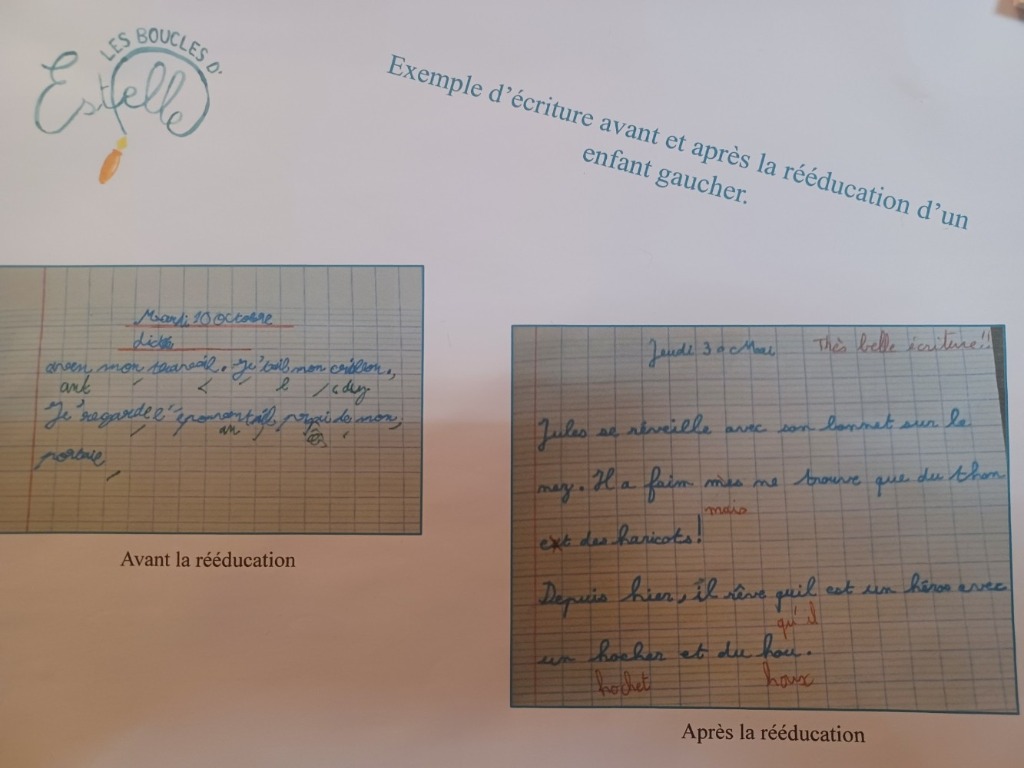 LES BOUCLES D'
Estelle
Exemple d'écriture avant et après la rééducation d'un
enfant gaucher.
Mardi 10 Octobre
mon Je mon
ant
Je regarde l' mon,
an
Avant la rééducation
Jeudi 3 Mai Très belle écriture!!
Jules se réveille avec son bonnet sur le
nez. Il a faim mes ne trouve que du thon
mais
et des haricots!
Depuis hier, il rêve quil est un héros avec
qu'il
un hocher et du hou.
hochet houx
Après la rééducation